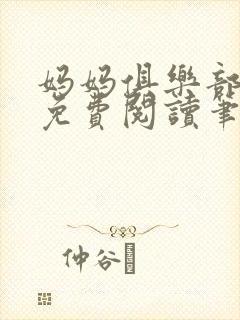 妈妈俱樂部
免費閱讀筆
仲谷